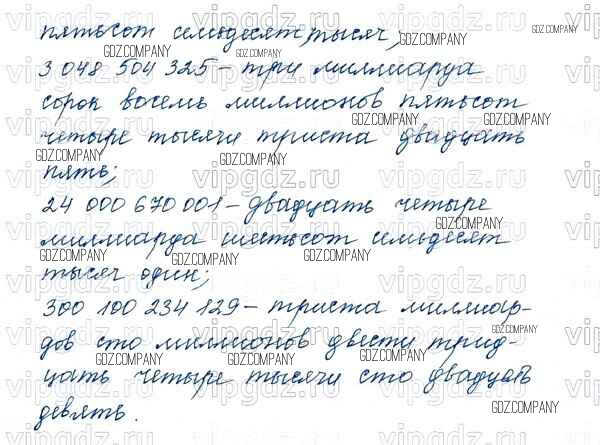 пятьсот семьдесят тысяч;
3 048 504 325 – три миллиарда
сорок восемь миллионов пятьсот
четыре тысячи триста двадцать
пять;
24 000 670 001 – двадцать четыре
миллиарда шестьсот семьдесят
тысяч один;
300 100 234 129 – триста миллиар-
дов сто миллионов двести трид-
цать четыре тысячи сто двадцать
девять.